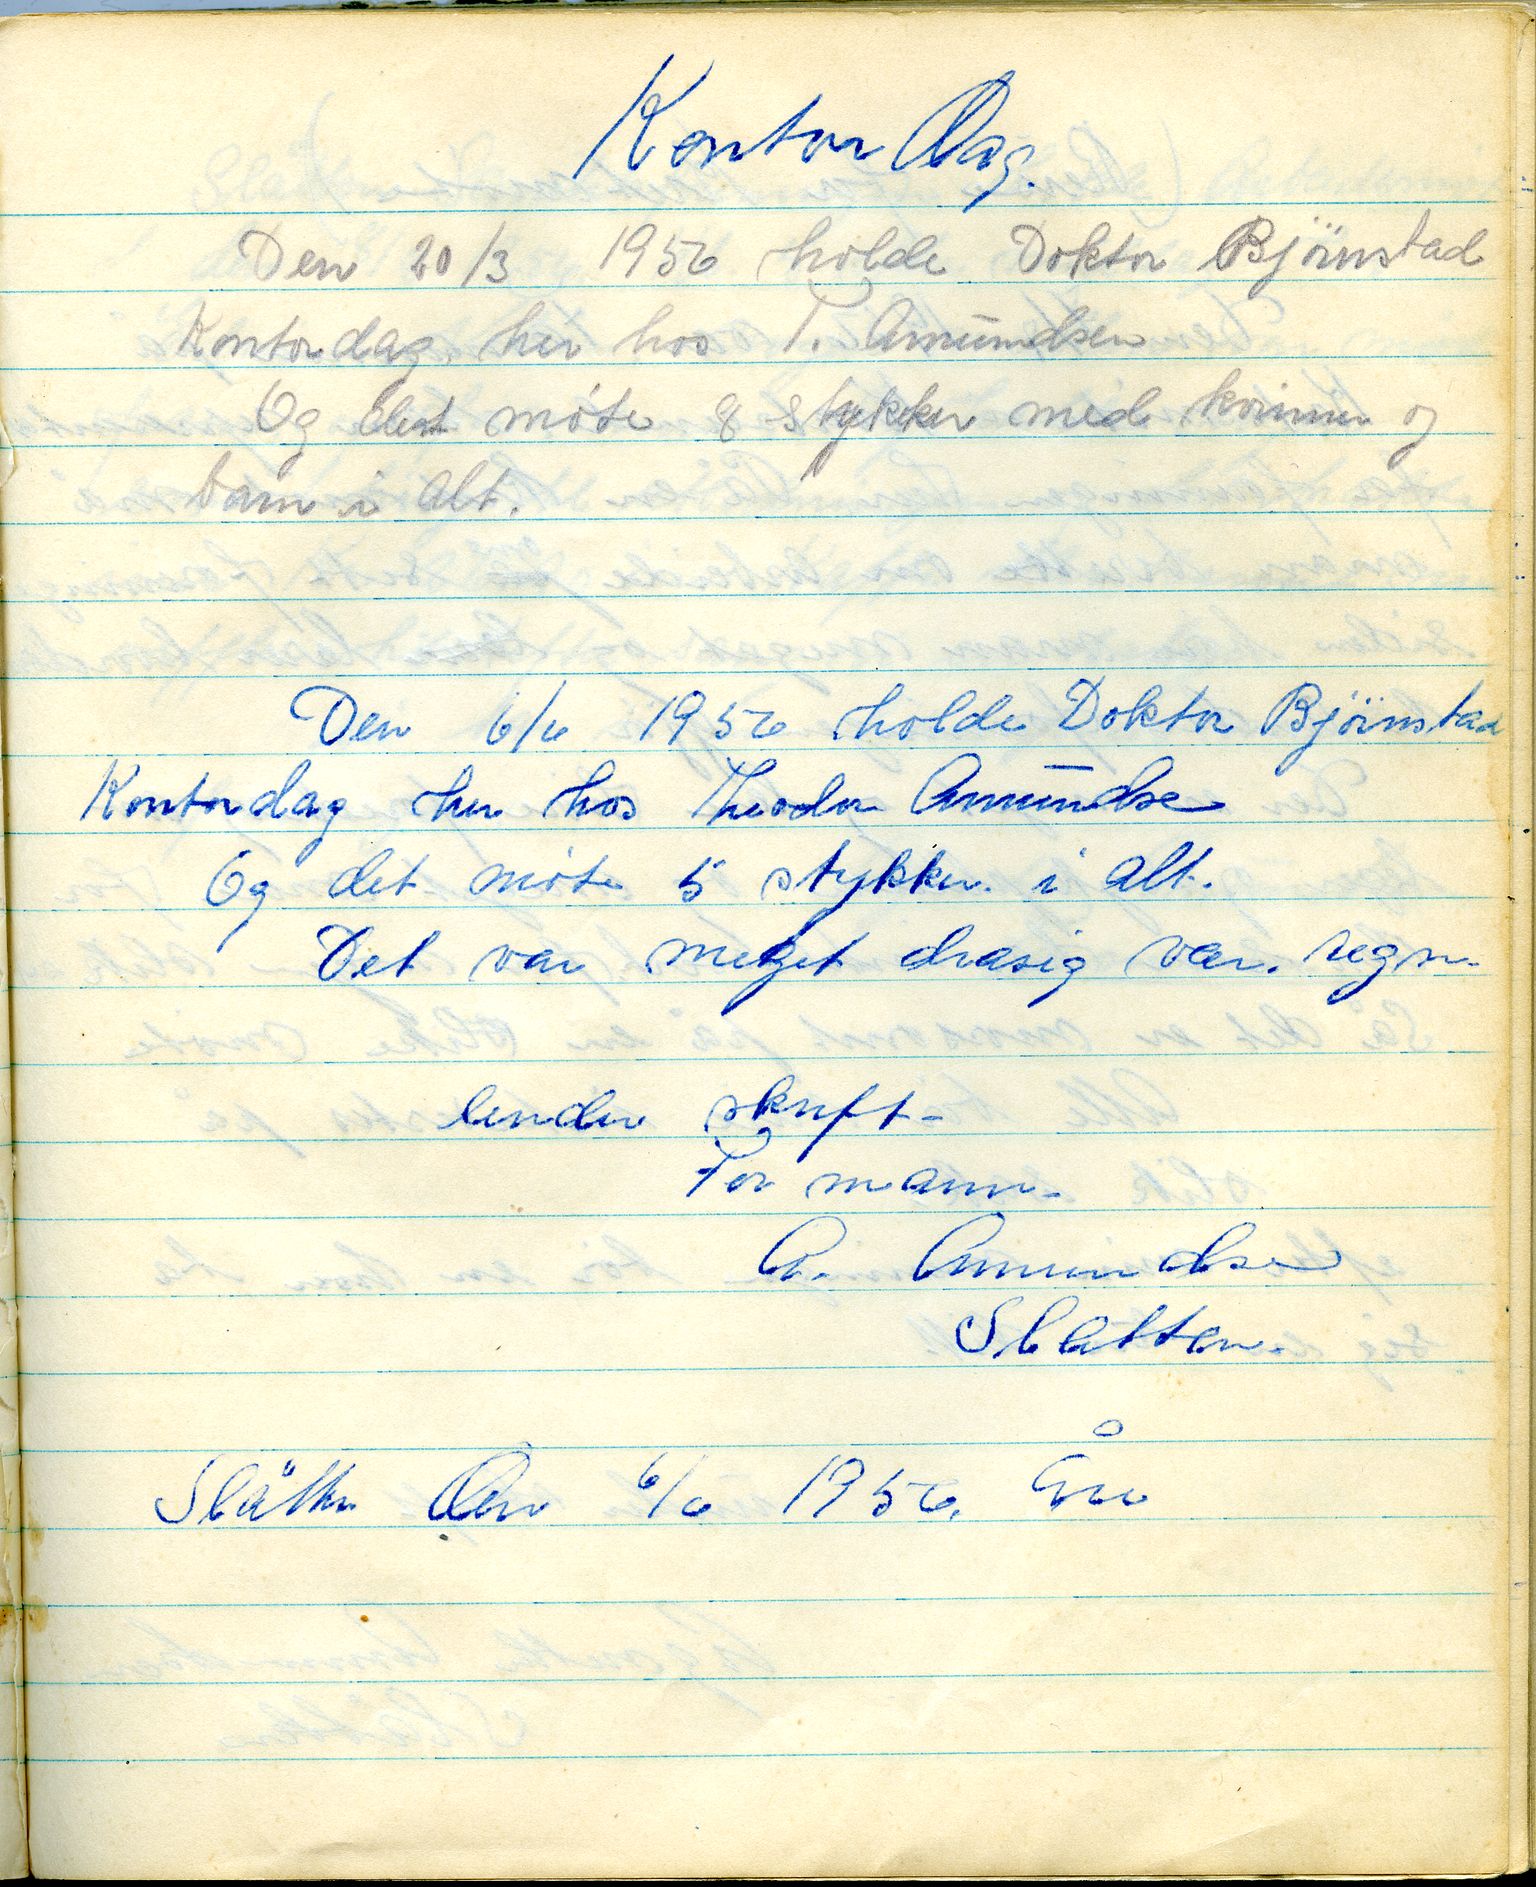 Kontor Dag.
Den 20/3 1956 holde Doktor Bjørnstad
Kontordag, her hos T. Amundsen
Og det møte 8 stykker med kvinner og
barn i alt.
Den 6/6 1956 holde Doktor Bjørnstad
Kontordag her hos Theodor Amundse
Og det møte 5 stykker. i alt.
Det var meget drasig vær. regn.
under skrift-
For mann-
A. Amundsen
Slatten.
Slåtten Den 6/6 1956. År